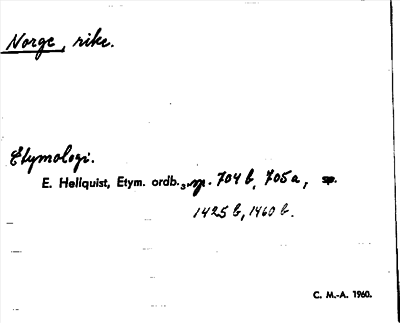 Norge, rike.
Etymologi.
E. Hellquist, Etym. ordb.3, sp. 704 b, 705 a, sp.
1425 b, 1460 b.
C. M.-A. 1960.